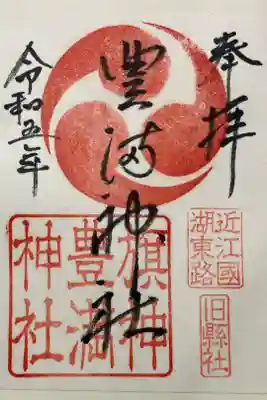 奉拝
豊満神社
令和五年
近江國
湖東路
旧縣社
旗神
豊満
神社